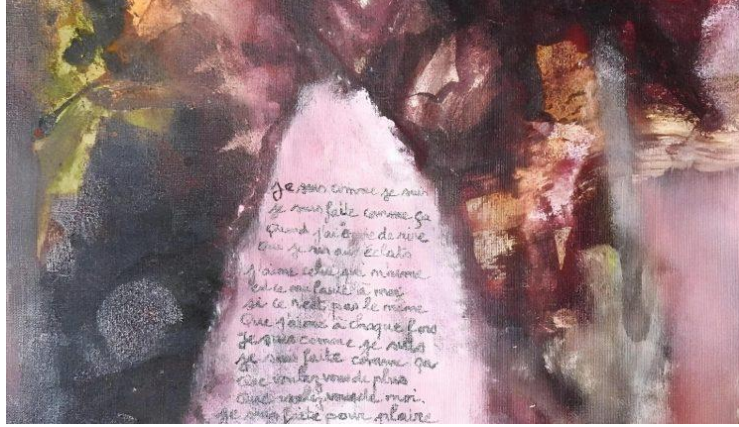 Je suis comme je suis
je suis faite comme ça
Quand j'ai envie de rire
Oui je ris aux éclats
j'aime celui qui m'aime
est-ce ma faute à moi
si ce n'est pas le même
Que j'aime à chaque fois
Je suis comme je suis
je suis faite comme ça
Que voulez vous de plus
Que voulez vous de moi
je suis faite pour plaire